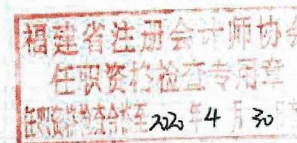 福建省注册会计师协会
任职资格检查专用章
任职资格检查合格至2020年4月30